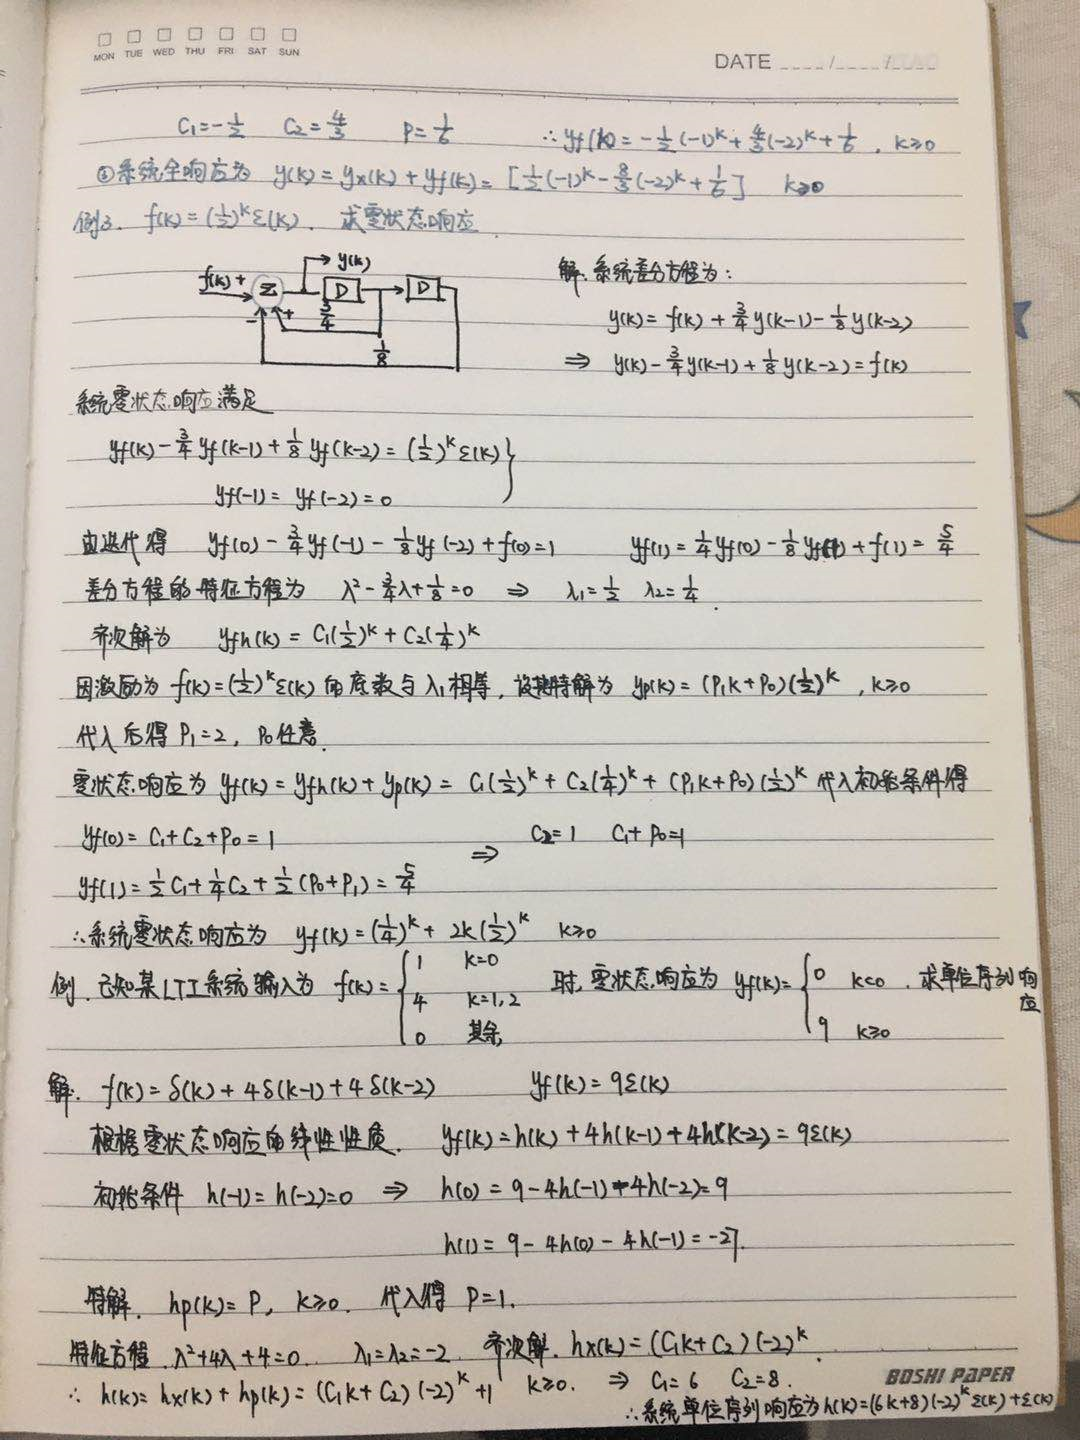 MON TUE WED THU FRI SAT SUN
DATE ____/____/
C₁=-1/2 C₂=4/3 P=1/6 ∴yf(k)=-1/2(-1)^k+4/3(-2)^k+1/6, k≥0
②系统全响应为 y(k)=yx(k)+yf(k)=[1/2(-1)^k-8/3(-2)^k+1/6] k≥0
例3. f(k)=(1/2)^k ε(k), 求零状态响应
f(k) + Σ y(k) D D
- + 3/4
1/8
解. 系统差分方程为:
y(k)=f(k)+3/4y(k-1)-1/8y(k-2)
⇒ y(k)-3/4y(k-1)+1/8y(k-2)=f(k)
系统零状态响应满足
yf(k)-3/4yf(k-1)+1/8yf(k-2)=(1/2)^k ε(k)}
yf(-1)=yf(-2)=0
由迭代得 yf(0)-3/4yf(-1)-1/8yf(-2)+f(0)=1 yf(1)=1/4yf(0)-1/8yf(-1)+f(1)=5/4
差分方程的特征方程为 λ²-3/4λ+1/8=0 ⇒ λ₁=1/2 λ₂=1/4.
齐次解为 yfh(k)=C₁(1/2)^k+C₂(1/4)^k
因激励为 f(k)=(1/2)^k ε(k)的底数与λ₁相等, 设其特解为 yp(k)=(P₁k+P₀)(1/2)^k, k≥0
代入后得 P₁=2, P₀任意.
零状态响应为 yf(k)=yfh(k)+yp(k)=C₁(1/2)^k+C₂(1/4)^k+(P₁k+P₀)(1/2)^k 代入初始条件得
yf(0)=C₁+C₂+P₀=1 ⇒ C₂=1 C₁+P₀=1
yf(1)=1/2C₁+1/4C₂+1/2(P₀+P₁)=5/4
∴系统零状态响应为 yf(k)=(1/4)^k+2k(1/2)^k k≥0
例. 已知某LTI系统输入为 f(k)={1 k=0; 4 k=1,2; 0 其余 时, 零状态响应为 yf(k)={0 k<0; 9 k≥0. 求单位序列响应
解. f(k)=δ(k)+4δ(k-1)+4δ(k-2) yf(k)=9ε(k)
根据零状态响应的线性性质. yf(k)=h(k)+4h(k-1)+4h(k-2)=9ε(k)
初始条件 h(-1)=h(-2)=0 ⇒ h(0)=9-4h(-1)-4h(-2)=9
h(1)=9-4h(0)-4h(-1)=-27.
特解. hp(k)=P, k≥0. 代入得 P=1.
特征方程. λ²+4λ+4=0. λ₁=λ₂=-2. 齐次解. hx(k)=(C₁k+C₂)(-2)^k.
∴ h(k)=hx(k)+hp(k)=(C₁k+C₂)(-2)^k+1 k≥0. ⇒ C₁=6 C₂=8.
BOSHI PAPER
∴系统单位序列响应为h(k)=(6k+8)(-2)^k ε(k)+ε(k)